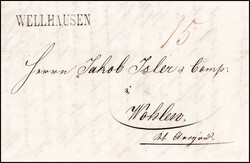 WELLHAUSEN
15
Herrn Jakob Isler & Comp:
in
Wohlen.
Kt. Aargau.